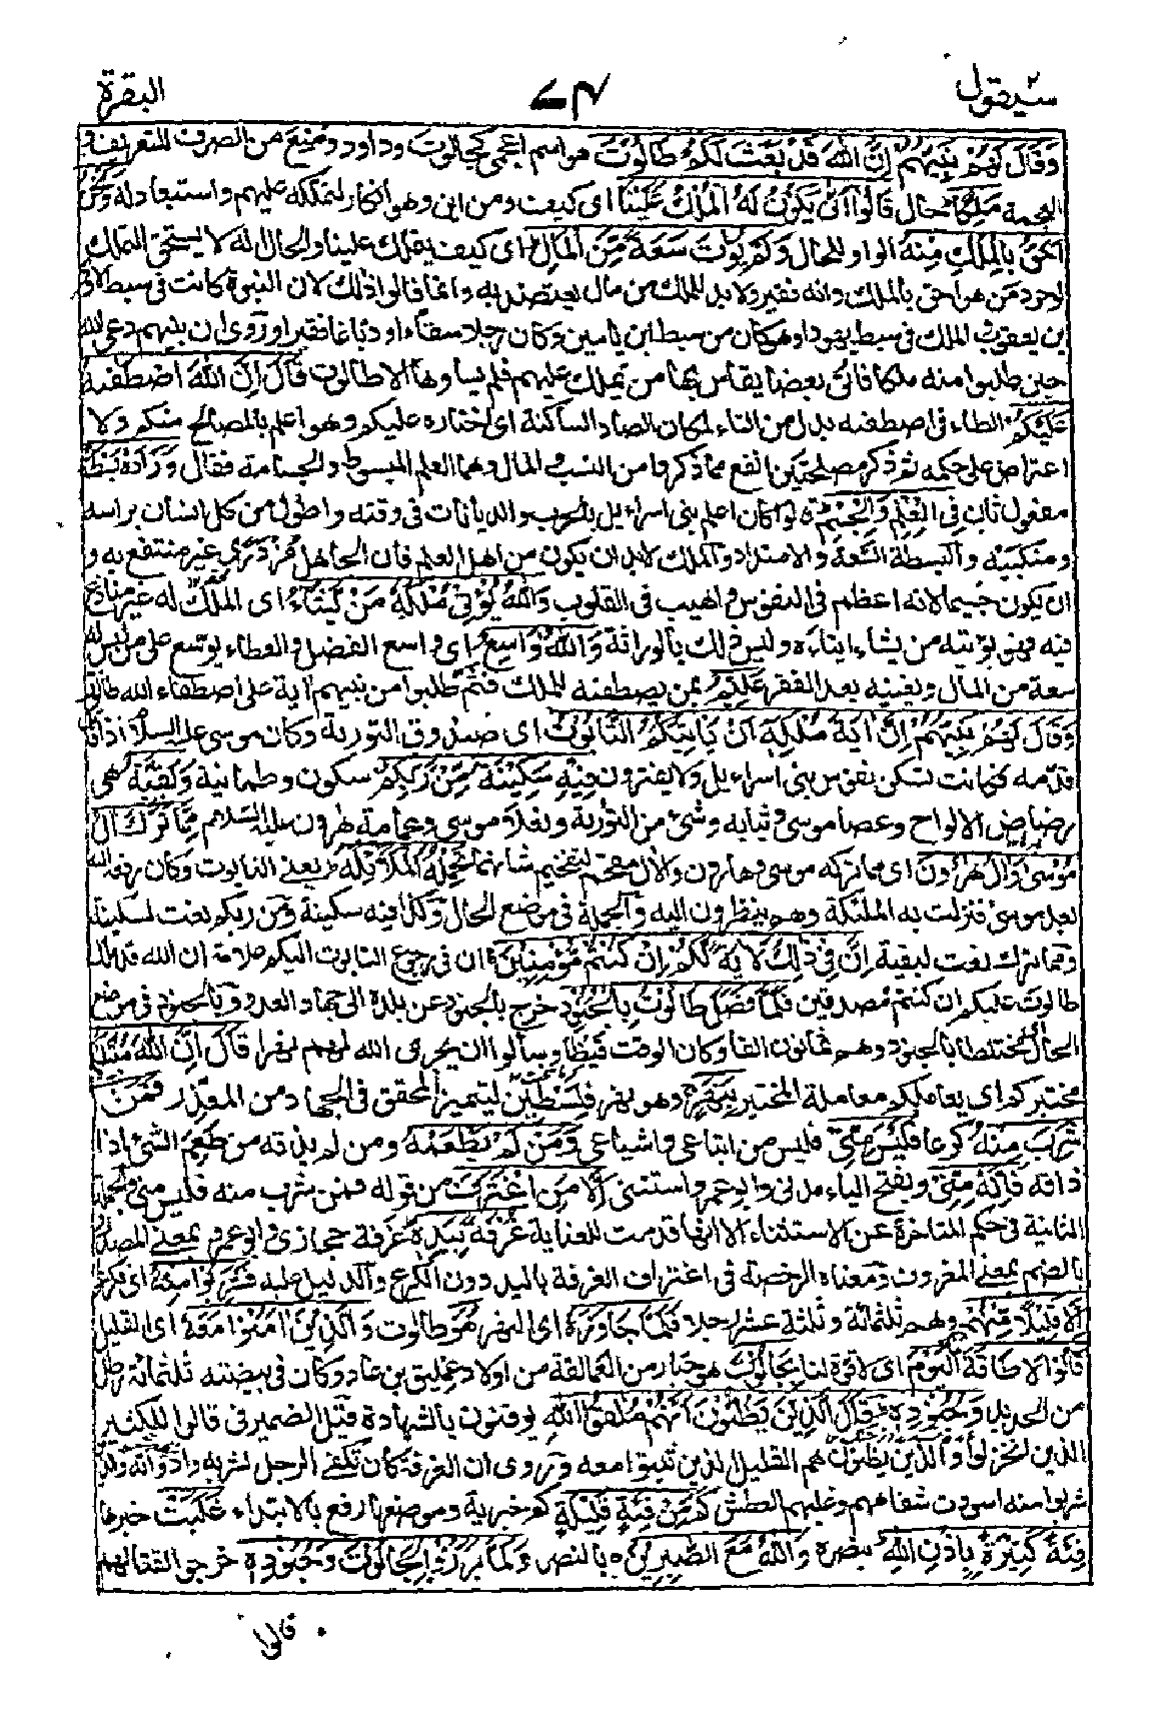 سيقول ٢
البقرة
وَقَالَ لَهُمْ نَبِيُّهُمْ إِنَّ اللهَ قَدْ بَعَثَ لَكُمْ طَالُوْتَ هو اسم اعجمى كجالوت وداود ومنع من الصرف للتعريف و
العجمة مَلِكًا حال قَالُوْا اَنّٰى يَكُوْنُ لَهُ الْمُلْكُ عَلَيْنَا اى كيف ومن اين وهو انكار لتملكه عليهم واستبعاد له وَنَحْنُ
اَحَقُّ بِالْمُلْكِ مِنْهُ الواو للحال وَلَمْ يُؤْتَ سَعَةً مِّنَ الْمَالِ اى كيف يتملك علينا والحال انه لا يستحق التملك
لوجود من هو احق بالملك وانه فقير ولا بد للملك من مال يعتضد به وانما قالوا ذلك لان النبوة كانت فى سبط لاوى
بن يعقوب والملك فى سبط يهودا وهو كان من سبط ابن يامين وكان رجلا سقاء او دباغا فقيرا وروى ان نبيهم دعى الله
حين طلبوا منه ملكا فاتى بعصا يقاس بها من تملك عليهم فلم يساوها الا طالوت قَالَ اِنَّ اللهَ اصْطَفٰىهُ
عَلَيْكُمْ الطاء فى اصطفىه بدل من التاء لمكان الصاد الساكنة اى اختاره عليكم وهو اعلم بالمصالح منكم ولا
اعتراض على حكمه ثم ذكر مصلحتين انفع مما ذكروا من النسب والمال وهما العلم المبسوط والجسامة فقال وَزَادَهُ بَسْطَةً
مفعول ثان فِى الْعِلْمِ وَالْجِسْمِ قالوا كان اعلم بنى اسراءيل بالحرب والديانات فى وقته واطول من كل انسان براسه
ومنكبيه والبسطة السعة والامتداد والملك لابد ان يكون من اهل العلم فان الجاهل مزدرى غير منتفع به و
ان يكون جسيما لانه اعظم فى النفوس واهيب فى القلوب وَاللهُ يُؤْتِىْ مُلْكَهُ مَنْ يَّشَآءُ اى الملك له غير منازع
فيه فهو يؤتيه من يشاء ايتاءه وليس ذلك بالوراثة وَاللهُ وَاسِعٌ اى واسع الفضل والعطاء يوسع على من ليس له
سعة من المال ويغنيه بعد الفقر عَلِيْمٌ بمن يصطفيه للملك فثم طلبوا من نبيهم اية على اصطفاء الله طالوت
وَقَالَ لَهُمْ نَبِيُّهُمْ اِنَّ اٰيَةَ مُلْكِهٖ اَنْ يَّاْتِيَكُمُ التَّابُوْتُ اى صندوق التورية وكان موسى عليه السلام اذا قاتل
قدمه فكانت تسكن نفوس بنى اسراءيل ولا يفرون فِيْهِ سَكِيْنَةٌ مِّنْ رَّبِّكُمْ سكون وطمانية وَبَقِيَّةٌ هى
رضاض الالواح وعصا موسى وثيابه وشئ من التورية ونعلا موسى وعمامة هارون عليه السلام مِّمَّا تَرَكَ اٰلُ
مُوْسٰى وَاٰلُ هٰرُوْنَ اى مما تركه موسى وهارون والال مقحم لتفخيم شانهما تَحْمِلُهُ الْمَلٰٓئِكَةُ يعنى التابوت وكان رفعه الله
بعد موسى فنزلت به الملئكة وهم ينظرون اليه والجملة فى موضع الحال وكذا فيه سكينة ومن ربكم نعت لسكينة
ومما ترك نعت لبقية اِنَّ فِىْ ذٰلِكَ لَاٰيَةً لَّكُمْ اِنْ كُنْتُمْ مُّؤْمِنِيْنَ ان فى رجوع التابوت اليكم علامة ان الله قد ملك
طالوت عليكم ان كنتم مصدقين فَلَمَّا فَصَلَ طَالُوْتُ بِالْجُنُوْدِ خرج بالجنود عن بلده الى جهاد العدو وبالجنود فى موضع
الحال اى مختلطا بالجنود وهم ثمانون الفا وكان الوقت قيظا وسألوا ان يجرى الله لهم نهرا قَالَ اِنَّ اللهَ مُبْتَلِيْكُمْ
مختبركم اى يعاملكم معاملة المختبر بِنَهَرٍ وهو نهر فلسطين ليتميز المحقق فى الجهاد من المعذر فَمَنْ
شَرِبَ مِنْهُ كرعا فَلَيْسَ مِنِّىْ فليس من اتباعى واشياعى وَمَنْ لَّمْ يَطْعَمْهُ ومن لم يذقه من طعم الشئ اذا
ذاقه فَاِنَّهٗ مِنِّىْ وبفتح الياء مدنى وابو عمرو واستثنى اِلَّا مَنِ اغْتَرَفَ من قوله فمن شرب منه فليس منى والجملة
الثانية فى حكم المتاخرة عن الاستثناء الا انها قدمت للعناية غُرْفَةً بِيَدِهٖ غَرفة حجازى وابو عمرو بمعنى المصدر
بالضم بمعنى المغروف ومعناه الرخصة فى اغتراف الغرفة باليد دون الكرع والدليل عليه فَشَرِبُوْا مِنْهُ اى فكرعوا
اِلَّا قَلِيْلًا مِّنْهُمْ وهم ثلثمائة وثلثة عشر رجلا فَلَمَّا جَاوَزَهٗ اى النهر هُوَ طالوت وَالَّذِيْنَ اٰمَنُوْا مَعَهٗ اى القليل
قَالُوْا لَا طَاقَةَ لَنَا الْيَوْمَ اى لا قوة لنا بِجَالُوْتَ هو جبار من العمالقة من اولاد عمليق بن عاد وكان فى بيضته ثلثمائة رطل
من الحديد وَجُنُوْدِهٖ قَالَ الَّذِيْنَ يَظُنُّوْنَ اَنَّهُمْ مُّلٰقُوا اللهِ يوقنون بالشهادة قيل الضمير فى قالوا للكثير
الذين انخزلوا وَالَّذِيْنَ يَظُنُّوْنَ هم القليل الذين ثبتوا معه وروى ان الغرفة كان تكفى الرجل لشربه وادواته والذين
شربوا منه اسودت شفاههم وغلبهم العطش كَمْ مِّنْ فِئَةٍ قَلِيْلَةٍ كم خبرية وموضعها رفع بالابتداء غَلَبَتْ خبرها
فِئَةً كَثِيْرَةً بِاِذْنِ اللهِ بنصره وَاللهُ مَعَ الصّٰبِرِيْنَ بالنصر وَلَمَّا بَرَزُوْا لِجَالُوْتَ وَجُنُوْدِهٖ خرجوا لقتالهم
قالوا